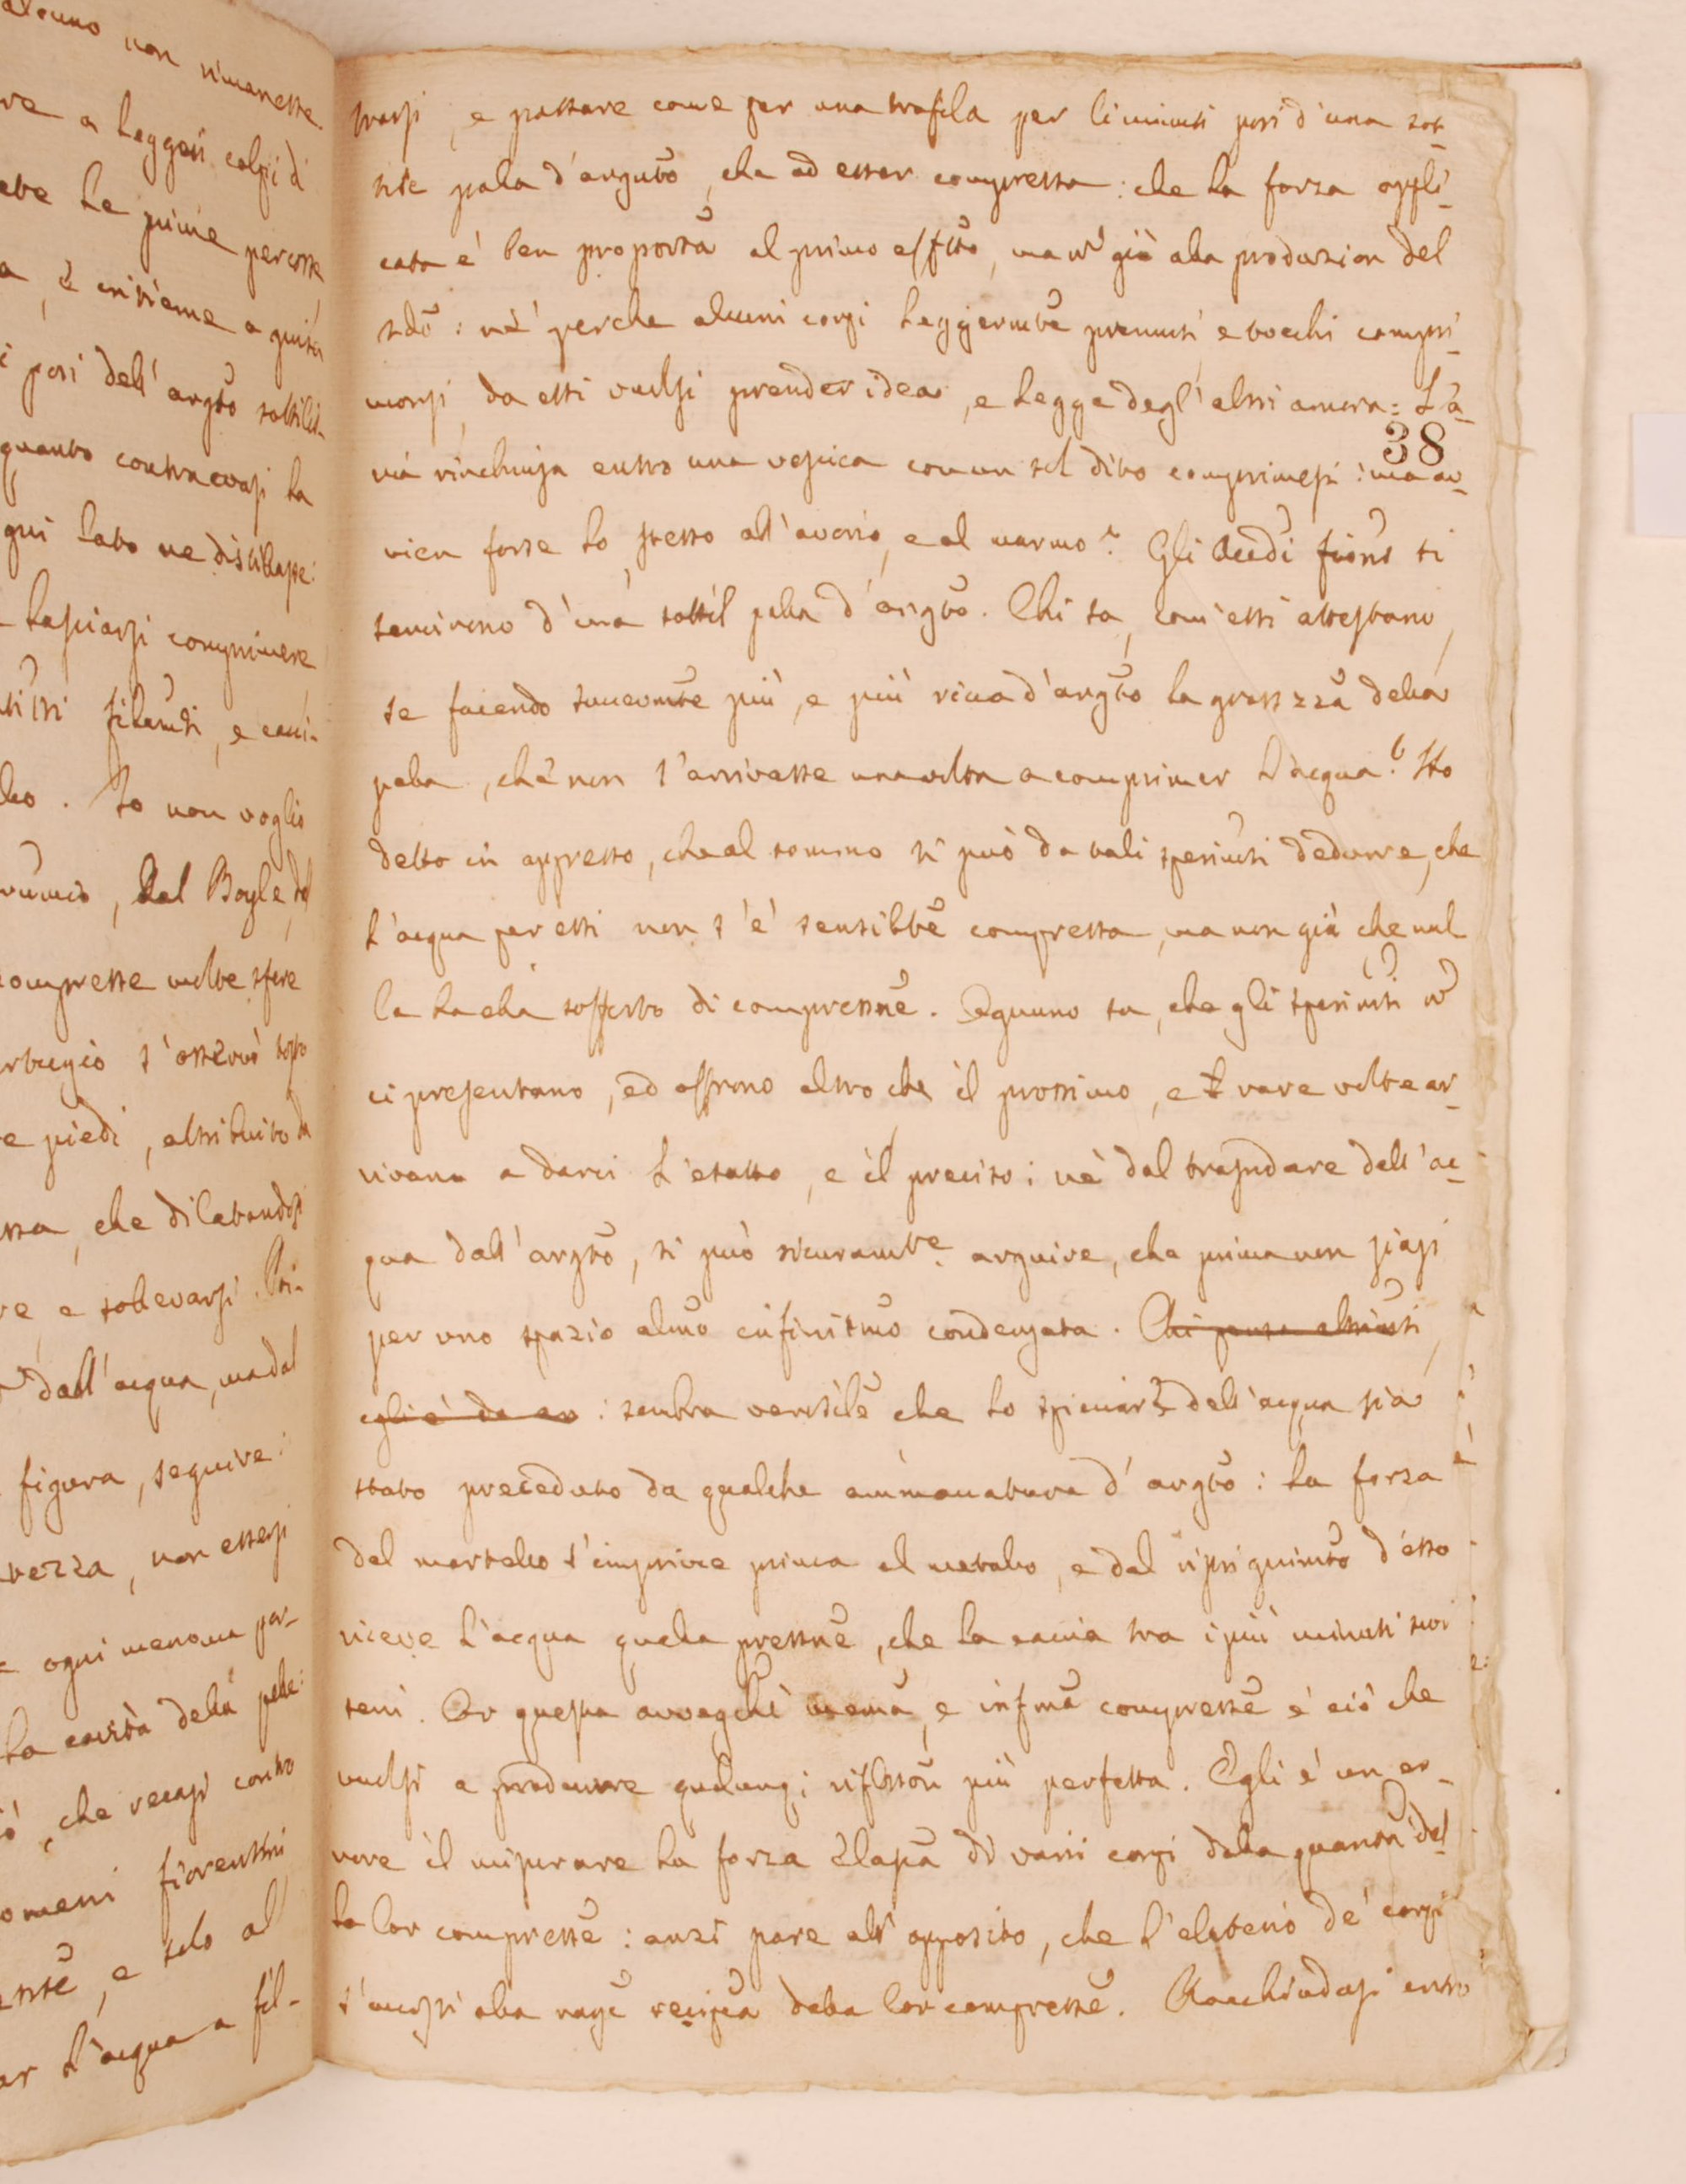 alcuno non rimanesse
re a leggeri colpi d
ebe le prime percosse
a, è insieme a guisa
i pori dell' argto sottilis-
quanto contra cosi la
qui lato ne distillasse:
lasciarsi comprimere
filamti, e cani-
leo. Io non voglio
, dal Boyle, dal
compresse molte sfere
s'osservò sotto
e piedi, attribuito da
ssa, che dilatandosi
re, e sollevarsi.
dall' acqua, ma dal
figura, seguire:
vezza, non essersi
e ogni menoma par-
la cavità della palla:
ò, che recasi contro
omeni fiorentini
, e solo al
ar l'acqua a fil-
trarsi, e passare come per una trafila per li minuti pori d'una sot-
tile palla d'argento, che ad esser compressa: che la forza appli-
cata è ben proporta al primo effetto, ma nõ già alla produzion del
sdo: nè perche alcuni corpi leggermte premuti e tocchi compri-
monsi, da essi vuolsi prender idea, e legge degl' altri ancora: L'a-
38
ria rinchiusa entro una vescica con un sol dito comprimesi: ma av-
vien forse lo stesso all' avorio, e al marmo? Gli Accdi fioñi si
servirono d'una sottil palla d'argto. Chi sa, com' essi attestano,
se facendo succomte più, e più ricca d'argto la grossezza della
palla, che non s'arrivasse una volta a comprimer l'acqua? Ho
detto in appresso, che al sommo si può da tali sperimti dedurre, che
l'acqua per essi non s'è sensibte compressa, ma non già che nul
la ha ella sofferto di compressne. Ognuno sa, che gli sperimti nõ
ci presentano, ed offrono altro che il prossimo, e rare volte ar-
rivano a darci l'esatto, e il preciso; nè dal trasudare dell' ac-
qua dall' argto, si può sicuramte arguire, che prima non siasi
per uno spazio almo infinitmo condensata. Chi pensa altrimti,
egli è da : sembra verisile che lo spicciar dell' acqua sia
stato preceduto da qualche ammaccatura d'argto: la forza
del martello s'imprime prima al metallo, e dal ripriguimto d'esso
riceve l'acqua quella pressne, che la caccia tra i più minuti suoi
seni. Or questa avvegche mema, e infma compresse è ciò che
vuolsi a produrre qualunq; riflesson più perfetta. Egli è un er-
rore il misurare la forza elasca di varii corpi dalla quanton del
la lor compresse: anzi pare all' opposito, che l'elaterio de' corpi
s'accosti alla rage recipca della lor compresse. Racchiudasi entro